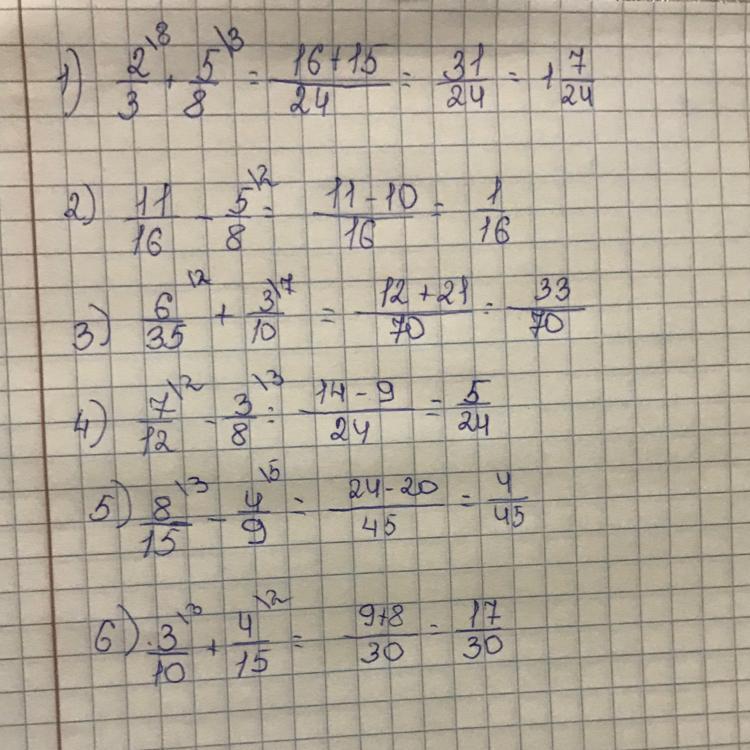 1) 2/3 \8 + 5/8 \3 = 16+15/24 = 31/24 = 1 7/24
2) 11/16 - 5/8 \2 = 11-10/16 = 1/16
3) 6/35 \2 + 3/10 \7 = 12+21/70 = 33/70
4) 7/12 \2 - 3/8 \3 = 14-9/24 = 5/24
5) 8/15 \3 - 4/9 \5 = 24-20/45 = 4/45
6) 3/10 \3 + 4/15 \2 = 9+8/30 = 17/30